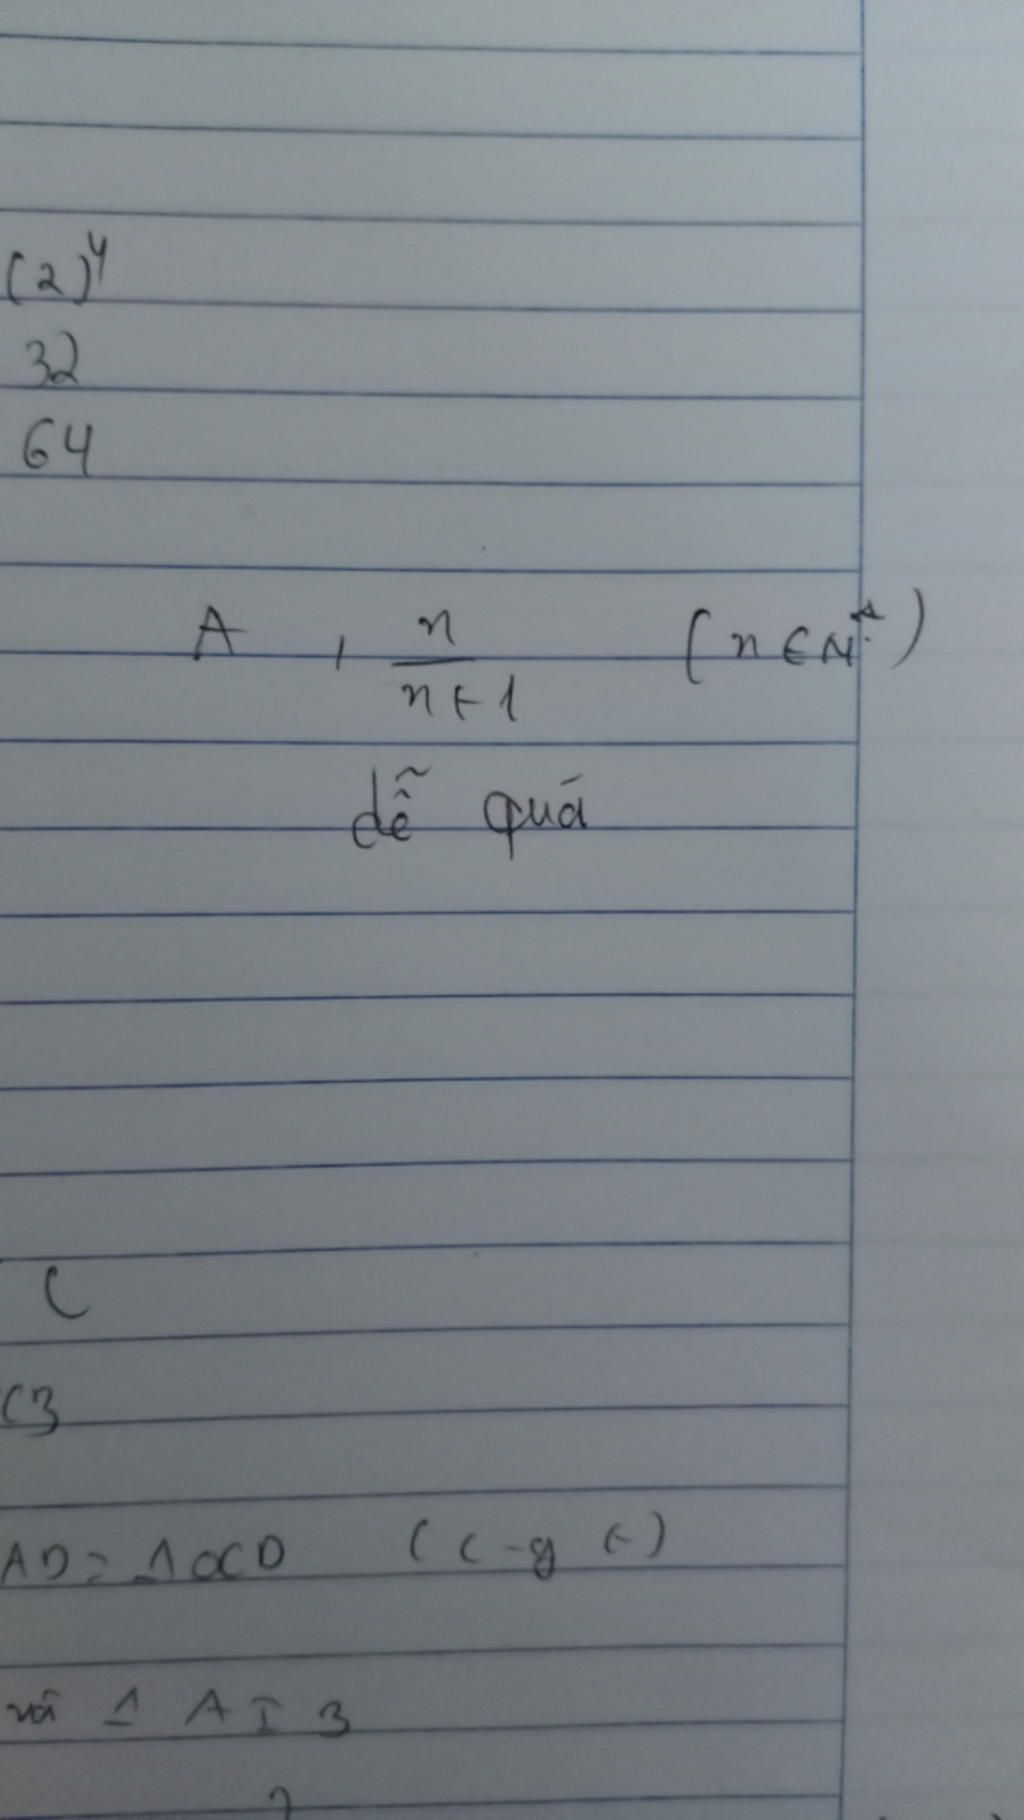 (2)⁴
32
64
A , n/(n+1) (n ∈ N*)
dễ quá
C
C3
AD = ΔOCD (c-g c)
và Δ A I 3